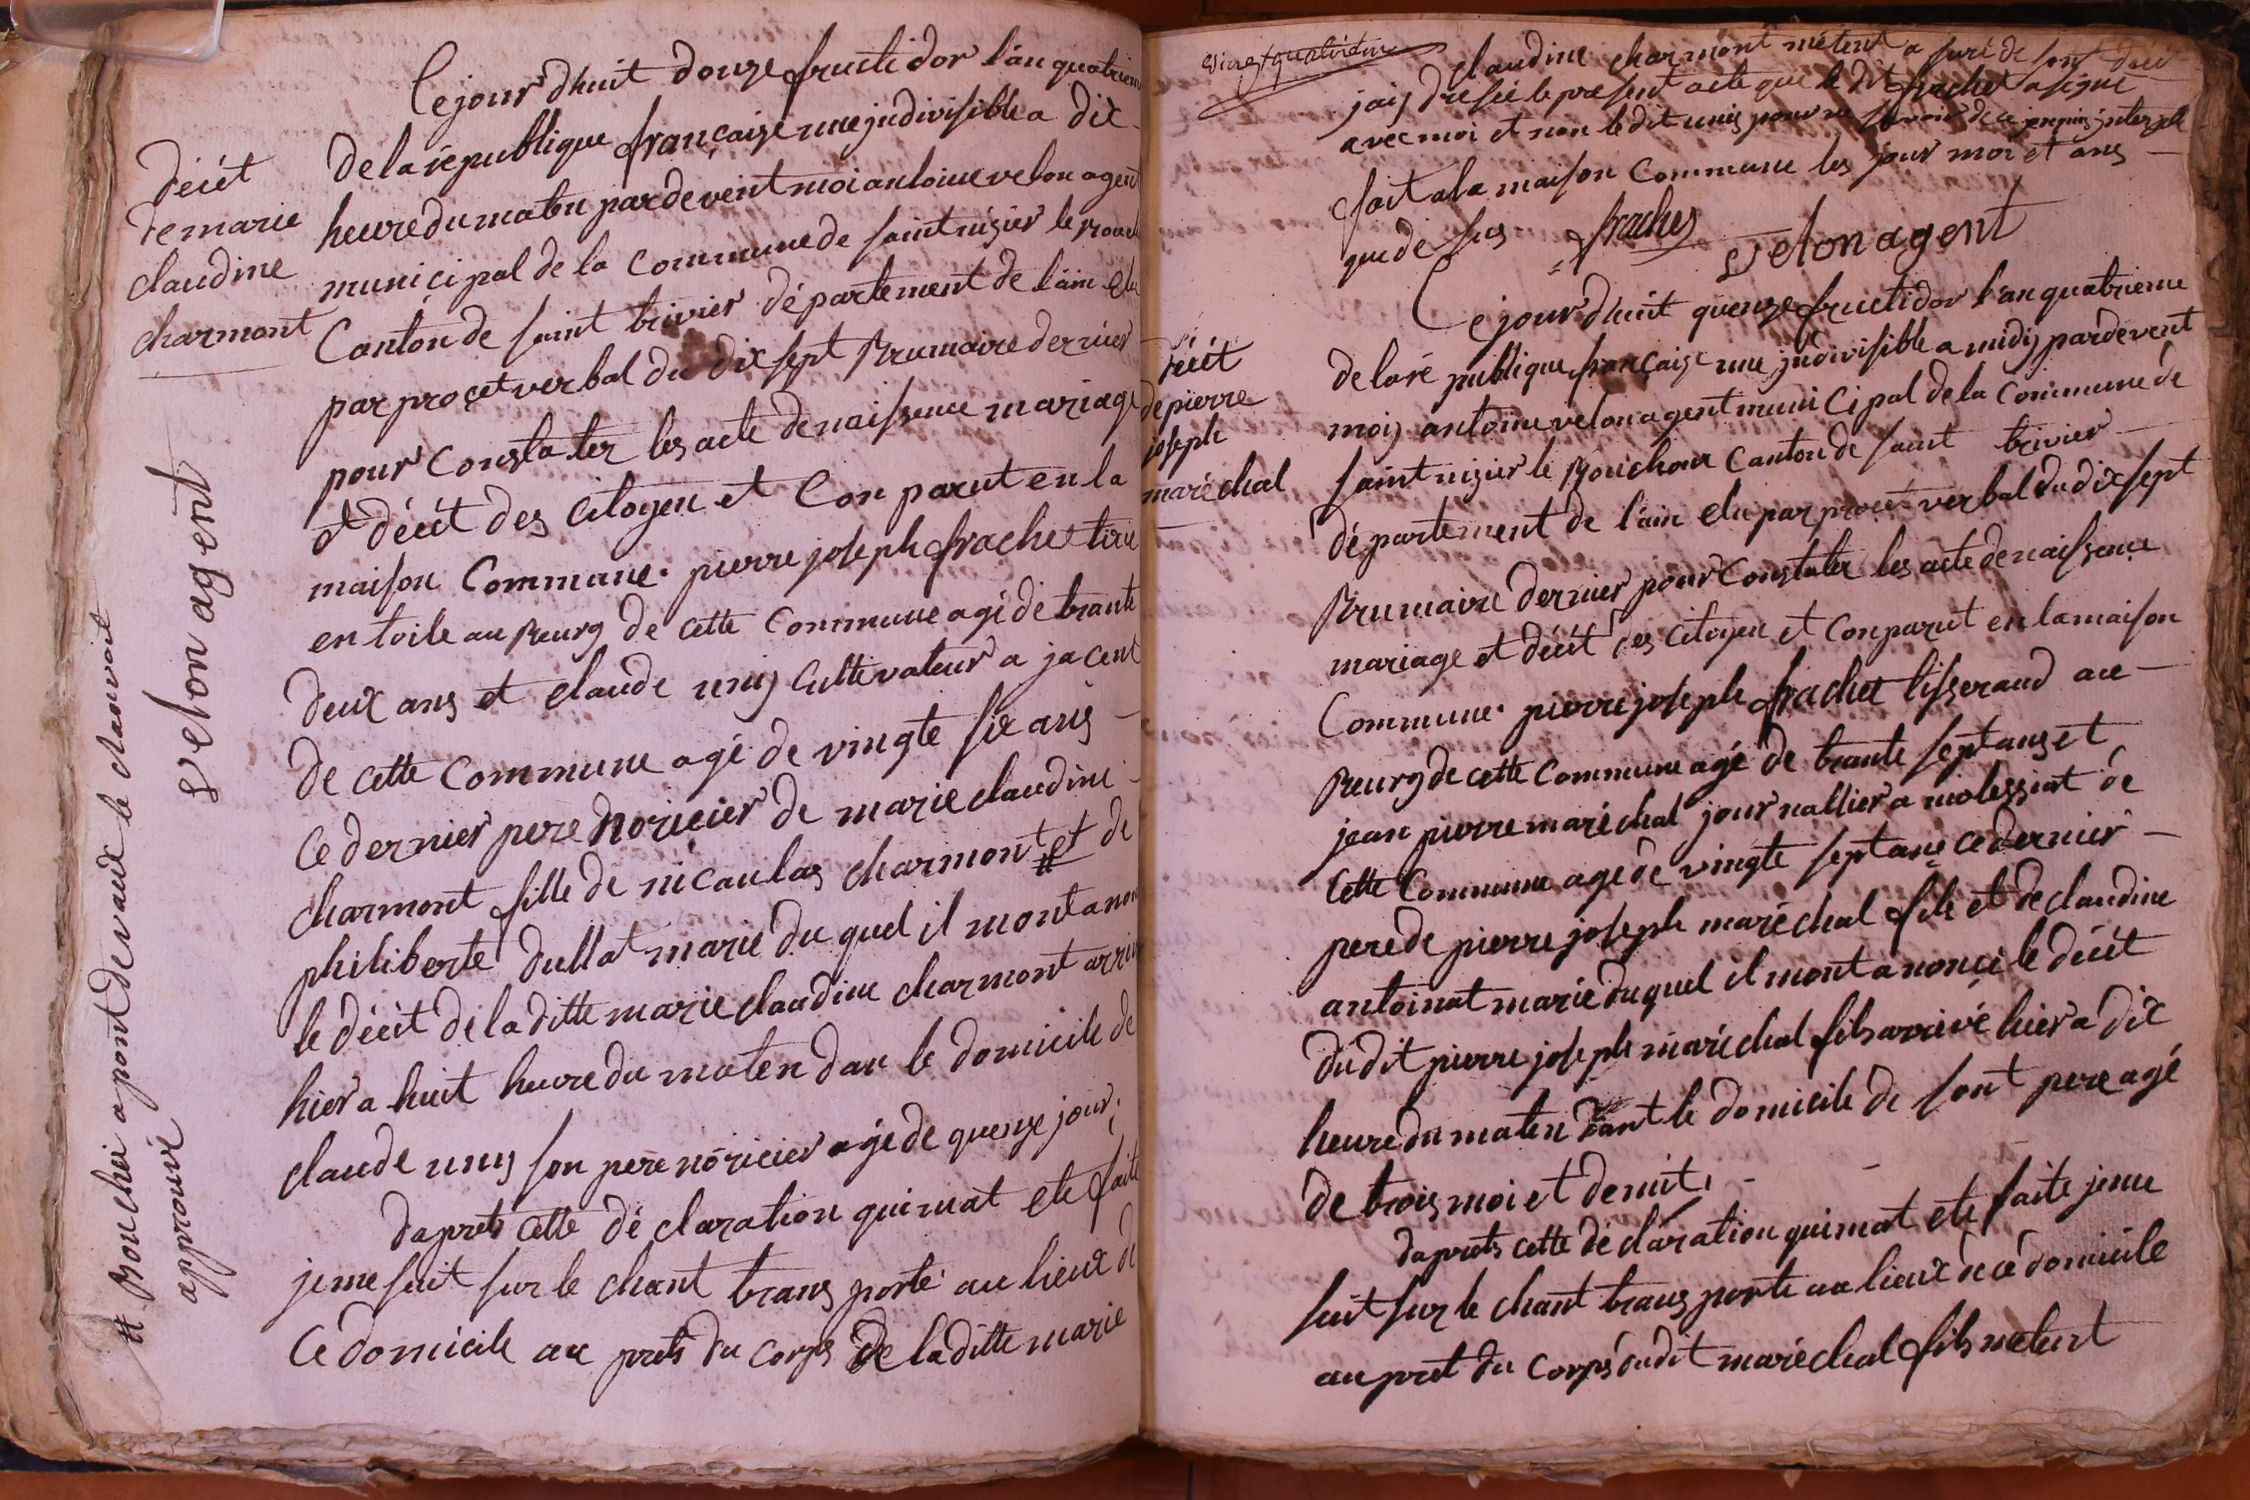 décét
de marie
claudine
charmont
Ce jour dhuit douze fructidor lan quatriem
de la république française une jndivisible a dix
heure du maten par devent moi antoine velon agent
municipal de la Commune de saint nizier le
Canton de saint trivier département de lain elu
par proçet verbal du dix sept Brumaire dernier
pour Constater les acte de naissence mariage
et décét des citoyen et Conparut en la
maison Commune. pierre joseph frachet
en toile au Bourg de cette Commune agé de trante
deux ans et claude uny Cultevateur a jacent
de cette Commune agé de vingte sie ans
Ce dernier pere noricier de marie claudine
charmont fille de nicaulas charmont # et de
philiberte dullat marié du quel il mont anon
le décét de la ditte marie claudine charmont arriv
hier a huit heure du maten dan le domicile de
claude uny son pere noricier agé de quenze jour.
daprets cette dé claration qui mat ete faite
je me suit sur le chant trans porté au lieux de
Ce domicile au prets du Corps de la ditte marie
# Bouchei a pont de vaux le
approuvé
velon agent
vingt quatrieme
claudine charmont metent a suré de son décé
jaij dressé le present acte que le dit frachet a signé
avec moi et non le dit unij pour ne savoir de ce
fait a la maison Commune les jour moi et ans
que de sus
frachet
velon agent
décét
de pierre
joseph
maréchal
Ce jour dhuit quenze fructidor lan quatrieme
de la ré publique française une jndivisible a midij par devent
moij antoine velon agent muni Cipal de la Commune de
saint nizier le Bouchoux Canton de saint trivier
département de lain elu par procé verbal du dix sept
Brumaire dernier pour Constater les acte de naissence
mariage et décét des citoyen et Conparut en la maison
Commune. pierre joseph frachet tisserand au
Bourg de cette Commune agé de trante sept ans et
jean pierre maréchal journallier a molessiat de
cette Commune agé de vingte sept ans ce dernier
pere de pierre joseph maréchal fils et de claudine
antoinat marié du quel il mont anoncé le décét
du dit pierre joseph maréchal fils arrivé hier a dix
heure du maten dant le domicile de sont pere agé
de trois moi et demit.
daprets cette dé claration qui mat ete faite je me
suit sur le chant trans porté au lieux de ce domicile
au pret du Corps du dit maréchal fils metent